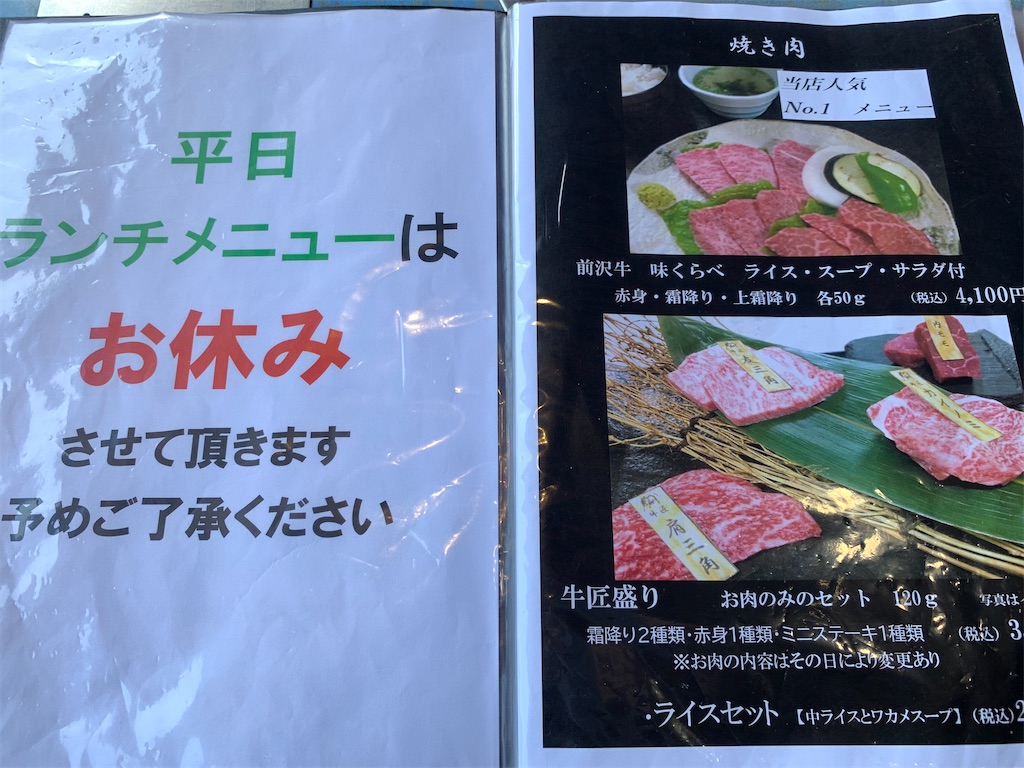 平日
ランチメニューは
お休み
させて頂きます
予めご了承ください
焼き肉
当店人気
No.1 メニュー
前沢牛 味くらべ ライス・スープ・サラダ付
赤身・霜降り・上霜降り 各50g (税込) 4,100円
肩三角
牛匠盛り お肉のみのセット 120g 写真は
霜降り2種類・赤身1種類・ミニステーキ1種類 (税込) 3,
※お肉の内容はその日により変更あり
・ライスセット 【中ライスとワカメスープ】 (税込) 2